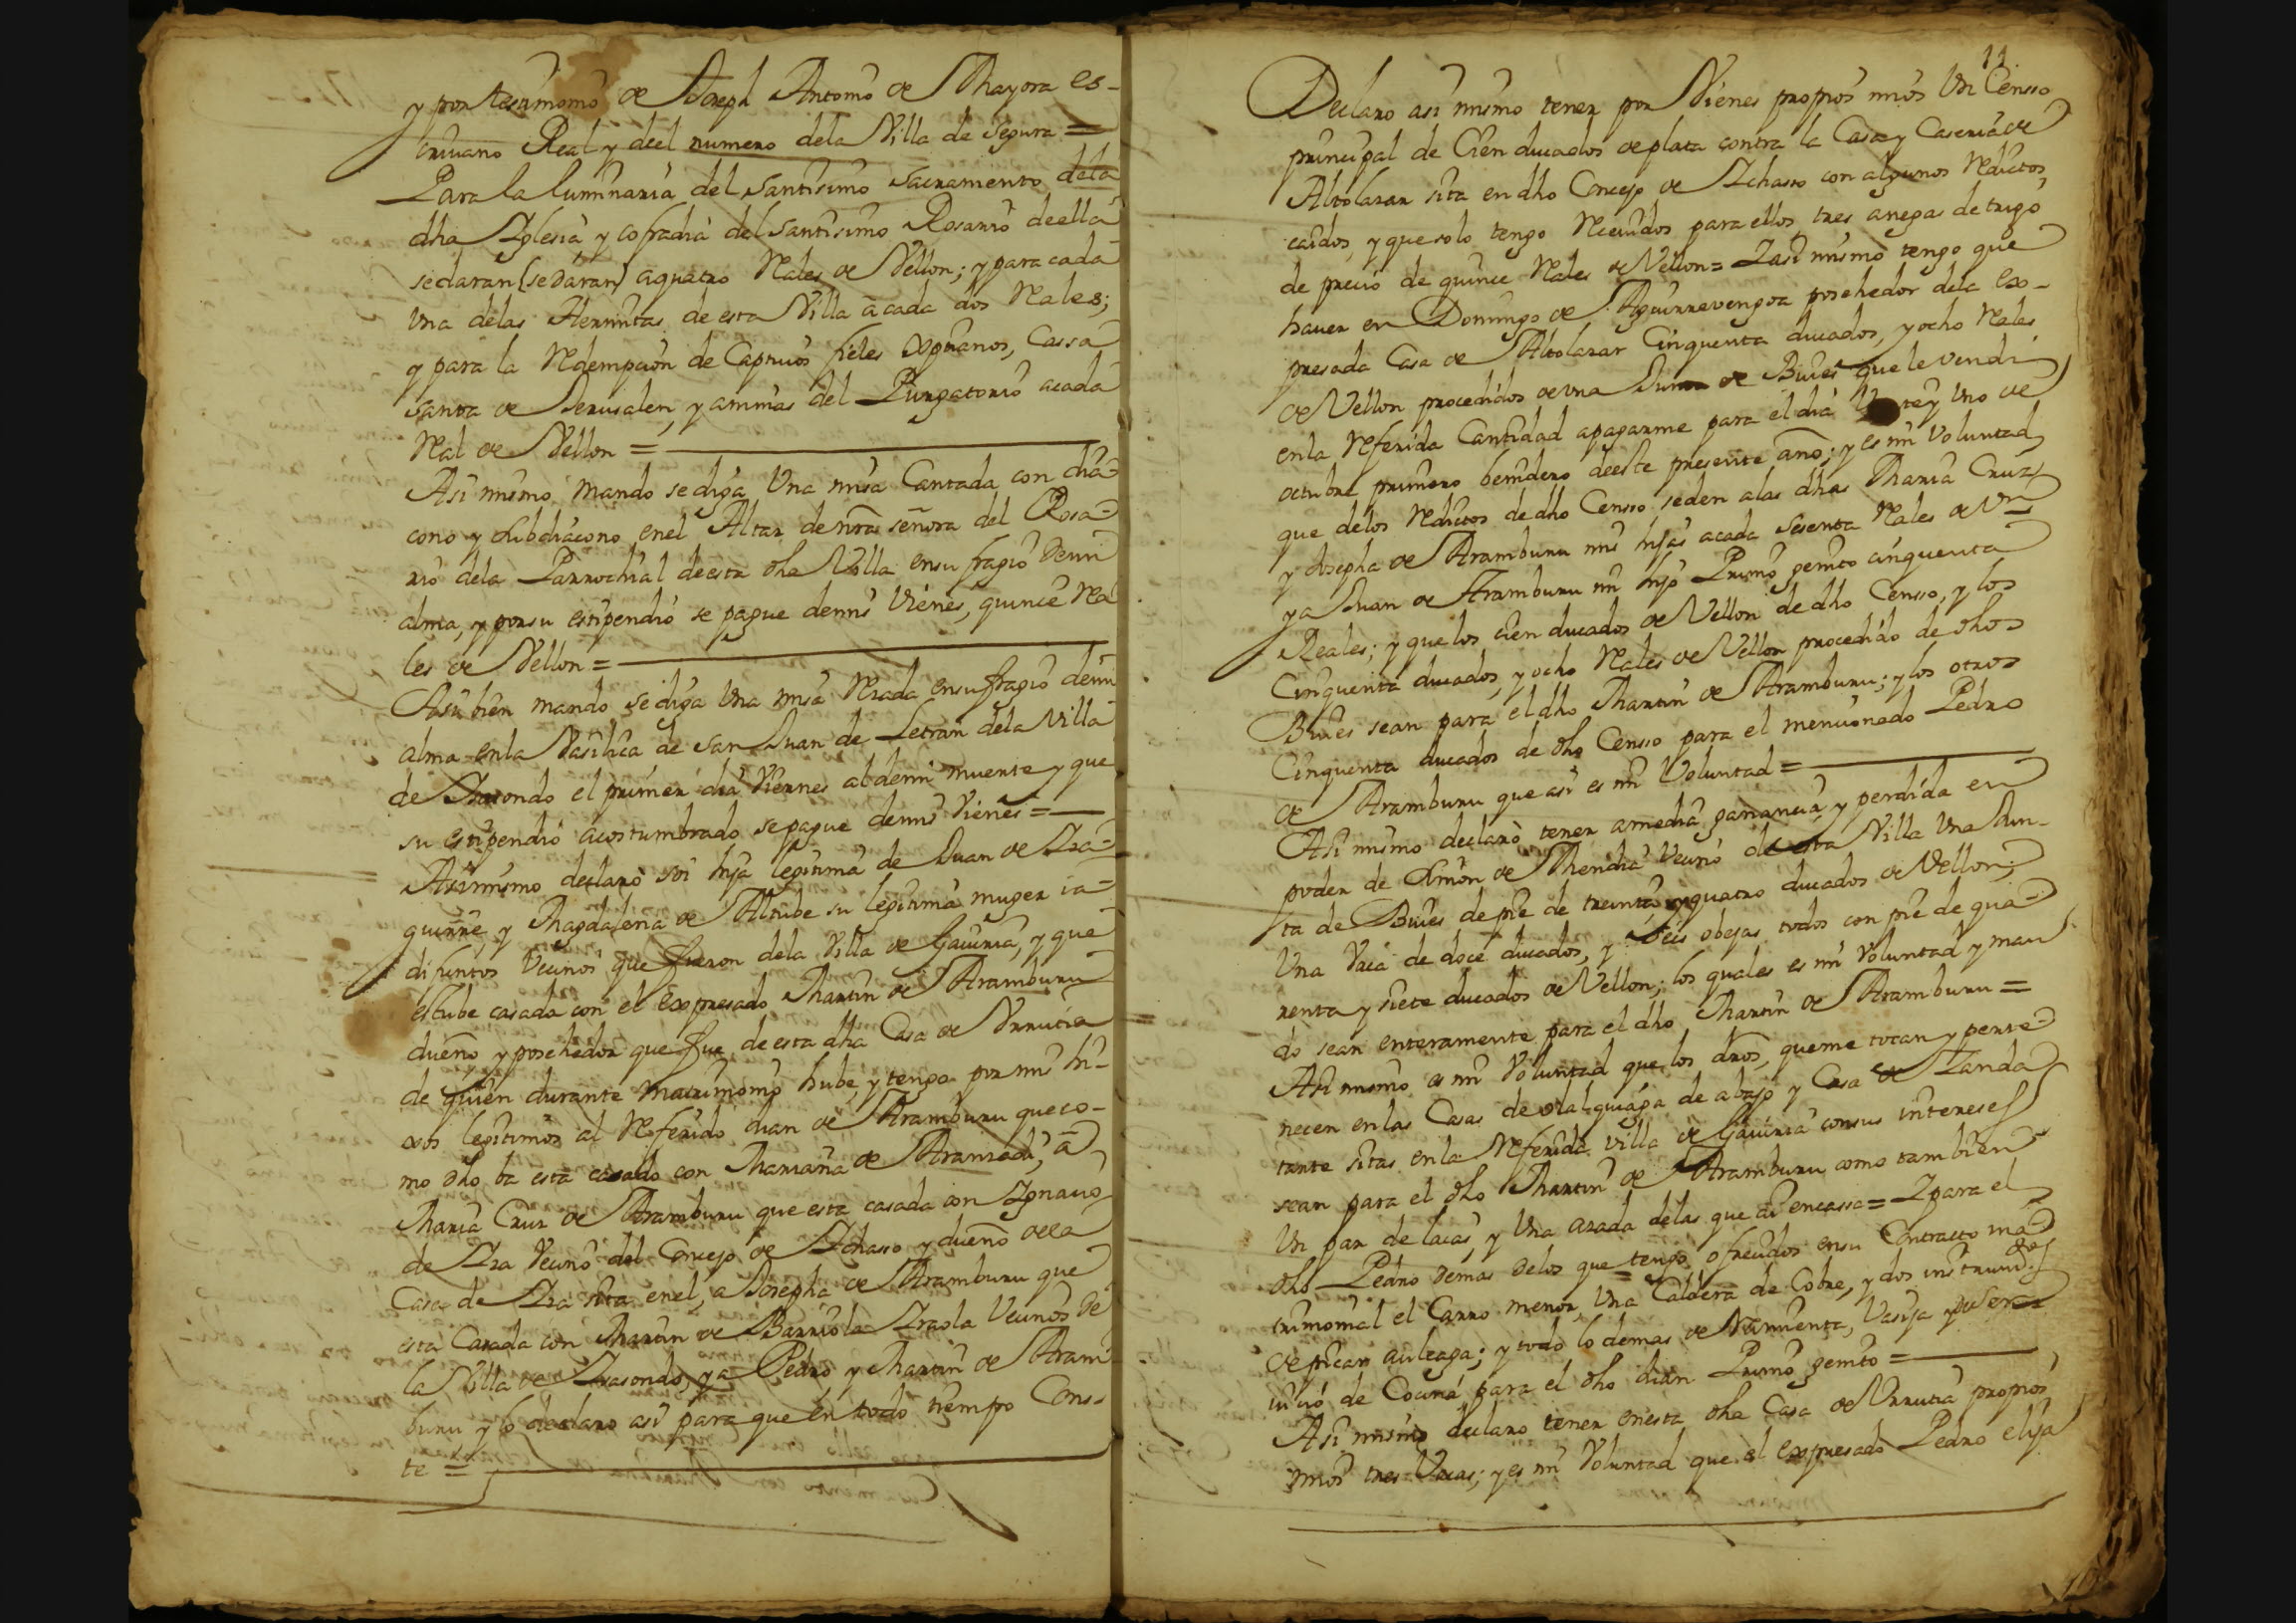 y por testimonio de Joseph Antonio de Mayora es-
criuano Real y del numero dela Villa de Segura =
Para la luminaria del Santisimo Sacramento dela
dha Iglesia y cofradia del Santisimo Rosario de ella
sedaran (se daran) aquatro Rales de Vellon; y para cada
Vna delas Hermitas de esta Villa a cada dos Rales;
y para la Redempcion de Captiuos fieles Xptianos, Cassa
Santa de Jerusalen, y animas del Purgatorio acada
Ral de Vellon =
Asi mismo mando se diga Vna misa Cantada con dia-
cono y subdiacono enel Altar de nra señora del Rosa-
rio dela Parrochial de esta dha Villa ensufragio demi
alma, y por su estipendio se pague demis Vienes, quince Ra
les de Vellon =
Asi bien mando se diga Vna misa Rezada ensufragio demi
alma enla Vasilica de San Juan de Letran dela Villa
de Ydiasondo el primer dia Viernes al demi muerte y que
su estipendio acostumbrado se pague demis Vienes =
Asimismo declaro soi hija legitima de Juan de Iza-
guirre, y Magdalena de Altube su legitima muger ia-
difuntos Vecinos que fueron dela Villa de Gauiria, y que
estube casada con el expresado Martin de Aramburu
dueño y posehedor que fue de esta dha Casa de Vrrutia
de quien durante matrimonio hube, y tengo por mis hi-
xos legitimos al Referido Juan de Aramburu que co-
mo dho ba esta casado con Mariana de Aranzadi, a
Maria Cruz de Aramburu que esta casada con Ignacio
de Iza Vecino del Concejo de Ichasso y dueño dela
Casa de Iza sita enel, a Josepha de Aramburu que
esta Casada con Martin de Barriola Izaola Vecinos de
la Villa de Ydiasondo, y a Pedro y Martin de Aram-
buru y lo declaro asi para que en todo tiempo Cons-
te =
11
Declaro asi mismo tener por Vienes propios mios Vn Censso
principal de Cien ducados de plata contra la Casa y Caseria de
Altolazar sita en dho Concejo de Ichasso con algunos Reditos
caidos, y que solo tengo Reciuidos para ellos, tres anegas de trigo
de precio de quince Rales de Vellon = Iasi mismo tengo que
hauer en Domingo de Aguirrevengoa posehedor dela Ex-
presada Casa de Altolazar Cinquenta ducados, y ocho Rales
de Vellon procedidos de vna Junta de Bueies que le vendi
enla Referida Cantidad apagarme para el dia te y Vno de
octubre primero benidero deeste presente año; y es mi Voluntad
que delos Reditos de dho Censso seden alas dhas Maria Cruz
y Josepha de Aramburu mis hijas acada Sesenta Rales de Vn
y a Juan de Aramburu mi hijo Primo genito cinquenta
Reales; y que los cien ducados de Vellon de dho Censso, y los
Cinquenta ducados, y ocho Rales de Vellon procedido de dhos
Bueies sean para el dho Martin de Aramburu; y los otros
Cinquenta ducados de dho Censso para el mencionado Pedro
de Aramburu que asi es mi Voluntad =
Asi mismo declaro tener amedia ganancia, y perdida en
poder de Simon de Mendia Vecino de esta Villa Vna Jun-
ta de Bueies de pie de treinta, y quatro ducados de Vellon;
Vna Vaca de doce ducados, y Seis obejas todos con pie de qua-
renta y siete ducados de Vellon; los quales es mi Voluntad y man
do sean enteramente para el dho Martin de Aramburu =
Asi mismo es mi Voluntad que los dros, queme tocan y perte-
necen enlas Casas de olalquiaga de abajo y Casa de Landa
tante sitas enla Referida Villa de Gauiria consus intereses
sean para el dho Martin de Aramburu como tambien
Vn par de laias, y Vna azada delas que ai encassa = I para el
dho Pedro demas delos que tengo ofrecidos ensu Contracto ma-
trimonial el Carro menor, Vna Caldera de Cobre, y dos instrumtos
de picar aulcaga; y todo lo demas de erramienta, Vasija y ser-
uicio de Cocina para el dho Juan Primo genito =
Asi mismo declaro tener enesta dha Casa de Vrrutia propios
mios tres Vacas; y es mi Voluntad que el expresado Pedro elija